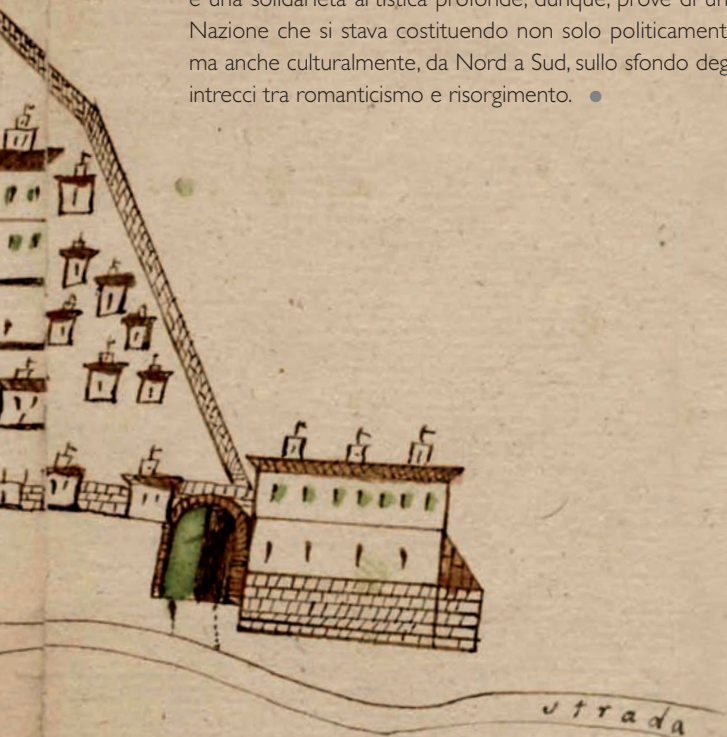 e una solidarietà artistica profonde, dunque, prove di un
Nazione che si stava costituendo non solo politicament
ma anche culturalmente, da Nord a Sud, sullo sfondo deg
intrecci tra romanticismo e risorgimento. ●
strada